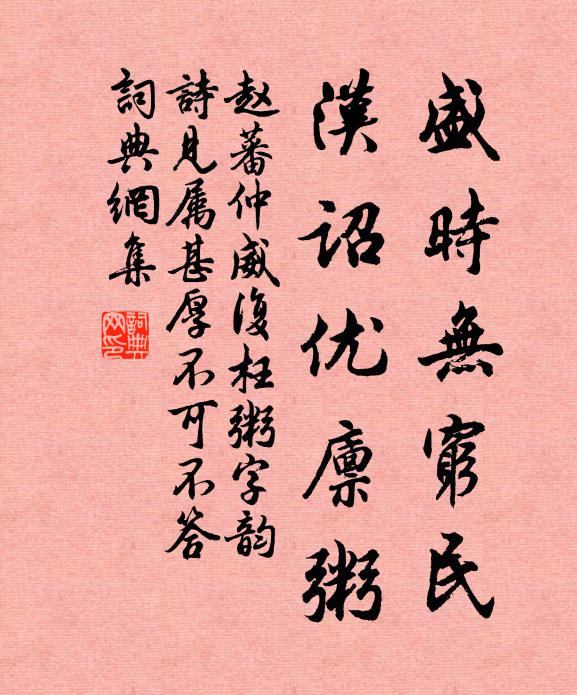 盛時無窮民
漢詔优廪粥
赵蕃仲威復枉粥字韵
詩見属甚厚不可不答
詞典網集
詞典网印